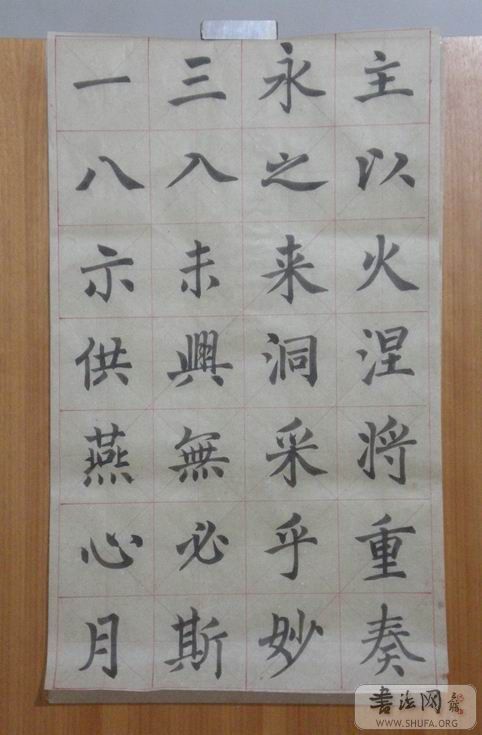 一三永主
八入之以
示未来火
供興洞涅
燕無采将
心必乎重
月斯妙奏
书法网
WWW.SHUFA.ORG